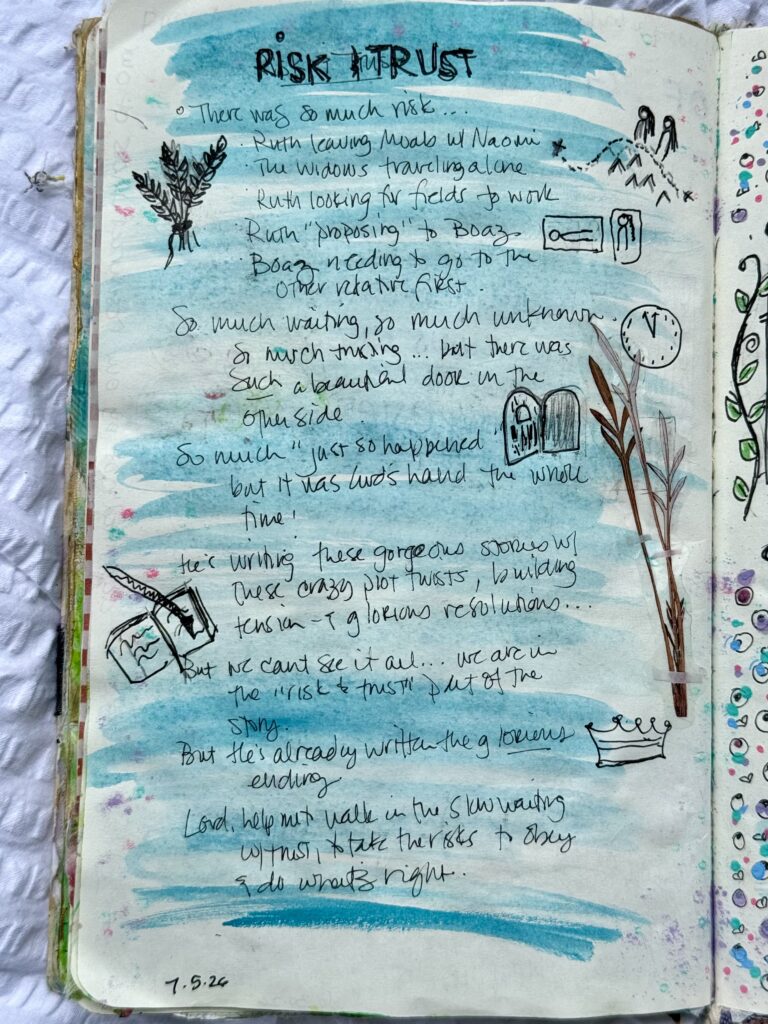 RISK & TRUST
There was so much risk...
Ruth leaving Moab w/ Naomi
The widows traveling alone
Ruth looking for fields to work
Ruth "proposing" to Boaz
Boaz needing to go to the
other relative first.
So much waiting, so much unknown.
So much trusting... but there was
such a beautiful door on the
other side.
So much "just so happened"
but it was God's hand the whole
time!
He's writing these gorgeous stories w/
these crazy plot twists, building
tension & glorious resolutions...
But we cant see it all... we are in
the "risk & trust" part of the
story.
But He's already written the glorious
ending
Lord, help me to walk in the slow waiting
w/ trust, to take the risks to obey
& do what's right.
7.5.26